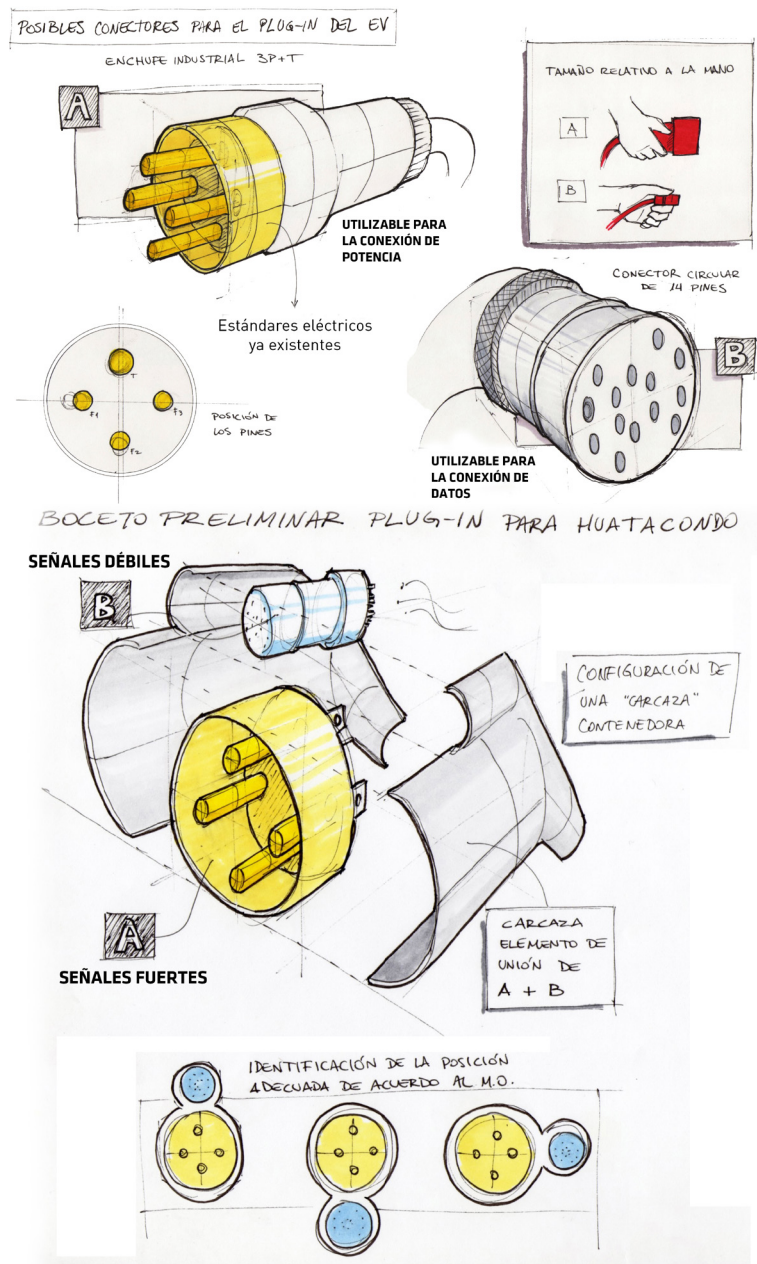 POSIBLES CONECTORES PARA EL PLUG-IN DEL EV
ENCHUFE INDUSTRIAL 3P+T
A
UTILIZABLE PARA
LA CONEXIÓN DE
POTENCIA
TAMAÑO RELATIVO A LA MANO
A
B
Estándares eléctricos
ya existentes
T
F1
F3
F2
POSICIÓN DE
LOS PINES
CONECTOR CIRCULAR
DE 14 PINES
B
UTILIZABLE PARA
LA CONEXIÓN DE
DATOS
BOCETO PRELIMINAR PLUG-IN PARA HUATACONDO
SEÑALES DÉBILES
B
CONFIGURACIÓN DE
UNA "CARCAZA"
CONTENEDORA
A
SEÑALES FUERTES
CARCAZA
ELEMENTO DE
UNIÓN DE
A + B
IDENTIFICACIÓN DE LA POSICIÓN
ADECUADA DE ACUERDO AL M.O.